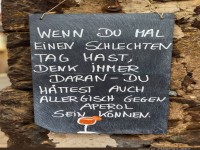 WENN DU MAL
EINEN SCHLECHTEN
TAG HAST,
DENK IMMER
DARAN - DU
HÄTTEST AUCH
ALLERGISCH GEGEN
APEROL
SEIN KÖNNEN.